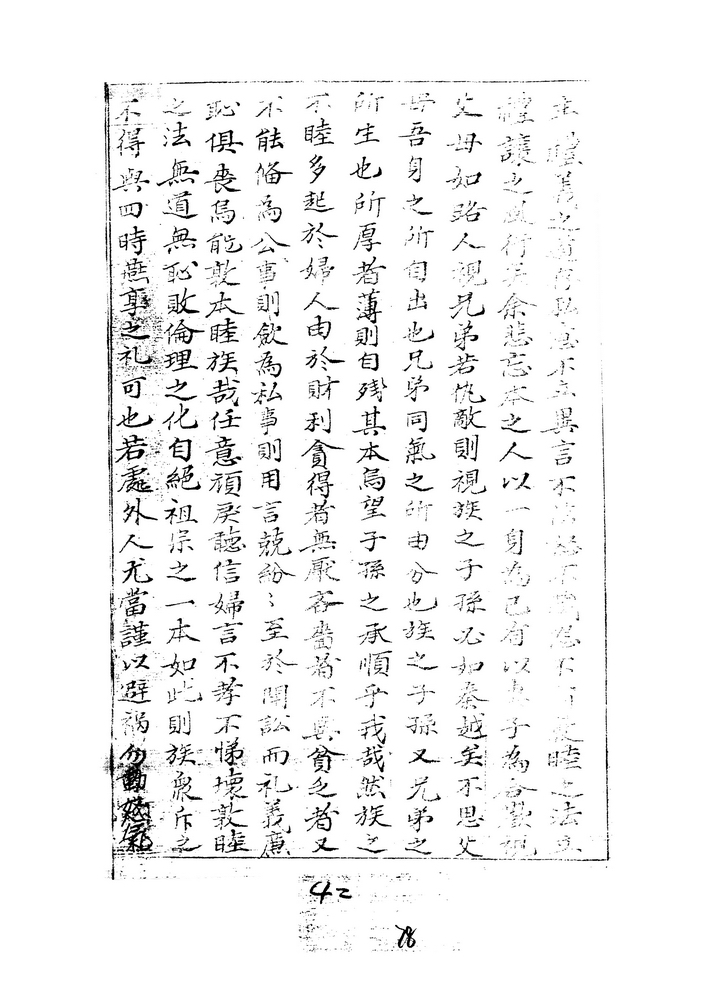 主睦義之道存私意不立異言不
睦之法立
禮讓之風行矣余悲忘本之人以一身為己有以妻子為合歡視
父母如路人視兄弟若仇敵則視族之子孫必如秦越矣不思父
母吾身之所自出也兄弟同氣之所由分也族之子孫又兄弟之
所生也所厚者薄則自殘其本焉望子孫之承順乎我哉然族之
不睦多起於婦人由於財利貪得者無厭吝嗇者不與貧乏者又
不能備為公事則斂為私事則用言競紛〻至於鬩訟而礼義廉
恥俱喪焉能敦本睦族哉任意頑戾聽信婦言不孝不悌壞敦睦
之法無道無恥敗倫理之化自絕祖宗之一本如此則族衆斥之
不得與四時燕享之礼可也若處外人尤當謹以避禍
42
78